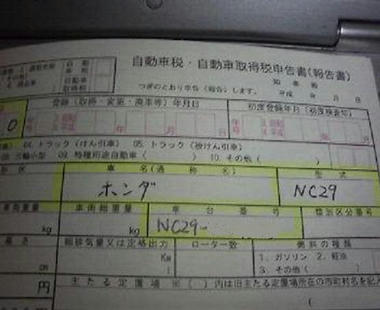 自動車税・自動車取得税申告書(報告書)
つぎのとおり申告(報告)します。
知事殿
平成 年 月 日
登録(取得・変更・廃車等)年月日
初度登録年月(初度検査年月)
0
年 月 日
年 月
04. トラック(けん引車) 05. トラック(被けん引車)
三輪小型 09. 特種用途自動車( ) 10. その他( )
車名(通称名) 型式
ホンダ NC29
車両総重量 車台番号 類別区分番号
kg kg NC29-
長さ 総排気量又は定格出力 ローター数 燃料の種類
Kw 1. ガソリン 2. 軽油
l 3. その他( )
円 主たる定置場